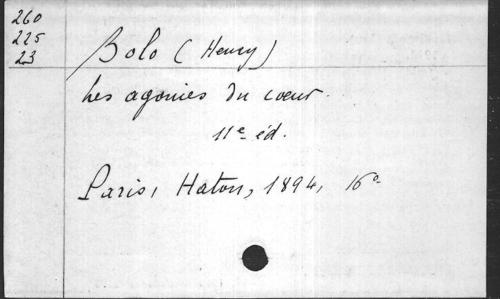 260
225
23
Bolo (Henry)
Les agonies du coeur.
11e éd.
Paris, Haton, 1894, 16°